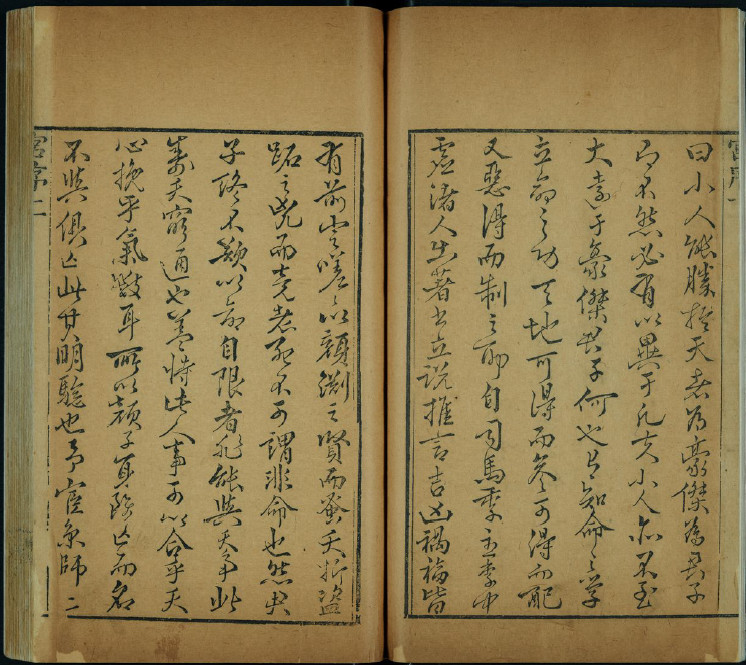 宮序一
曰小人能勝於天者為豪傑為君子
即不然必有以異于凡夫小人亦不至
大遠于豪傑君子何也知命之學
立命之功天地可得而參可得而配
又惡得而制之耶自司馬季主李中
虛諸人出著書立說推言吉凶禍福皆
有前定嗟嗟以顏淵之賢而蚤夭折盜
跖之兇而竟老死不可謂非命也然君
子終不敢以命自限者非能與天爭此
壽夭窮通也蓋恃此人事可以合乎天
心挽乎氣數耳所以顏子身雖亡而名
不與俱亡此其明驗也予宦京師 二
宮序二